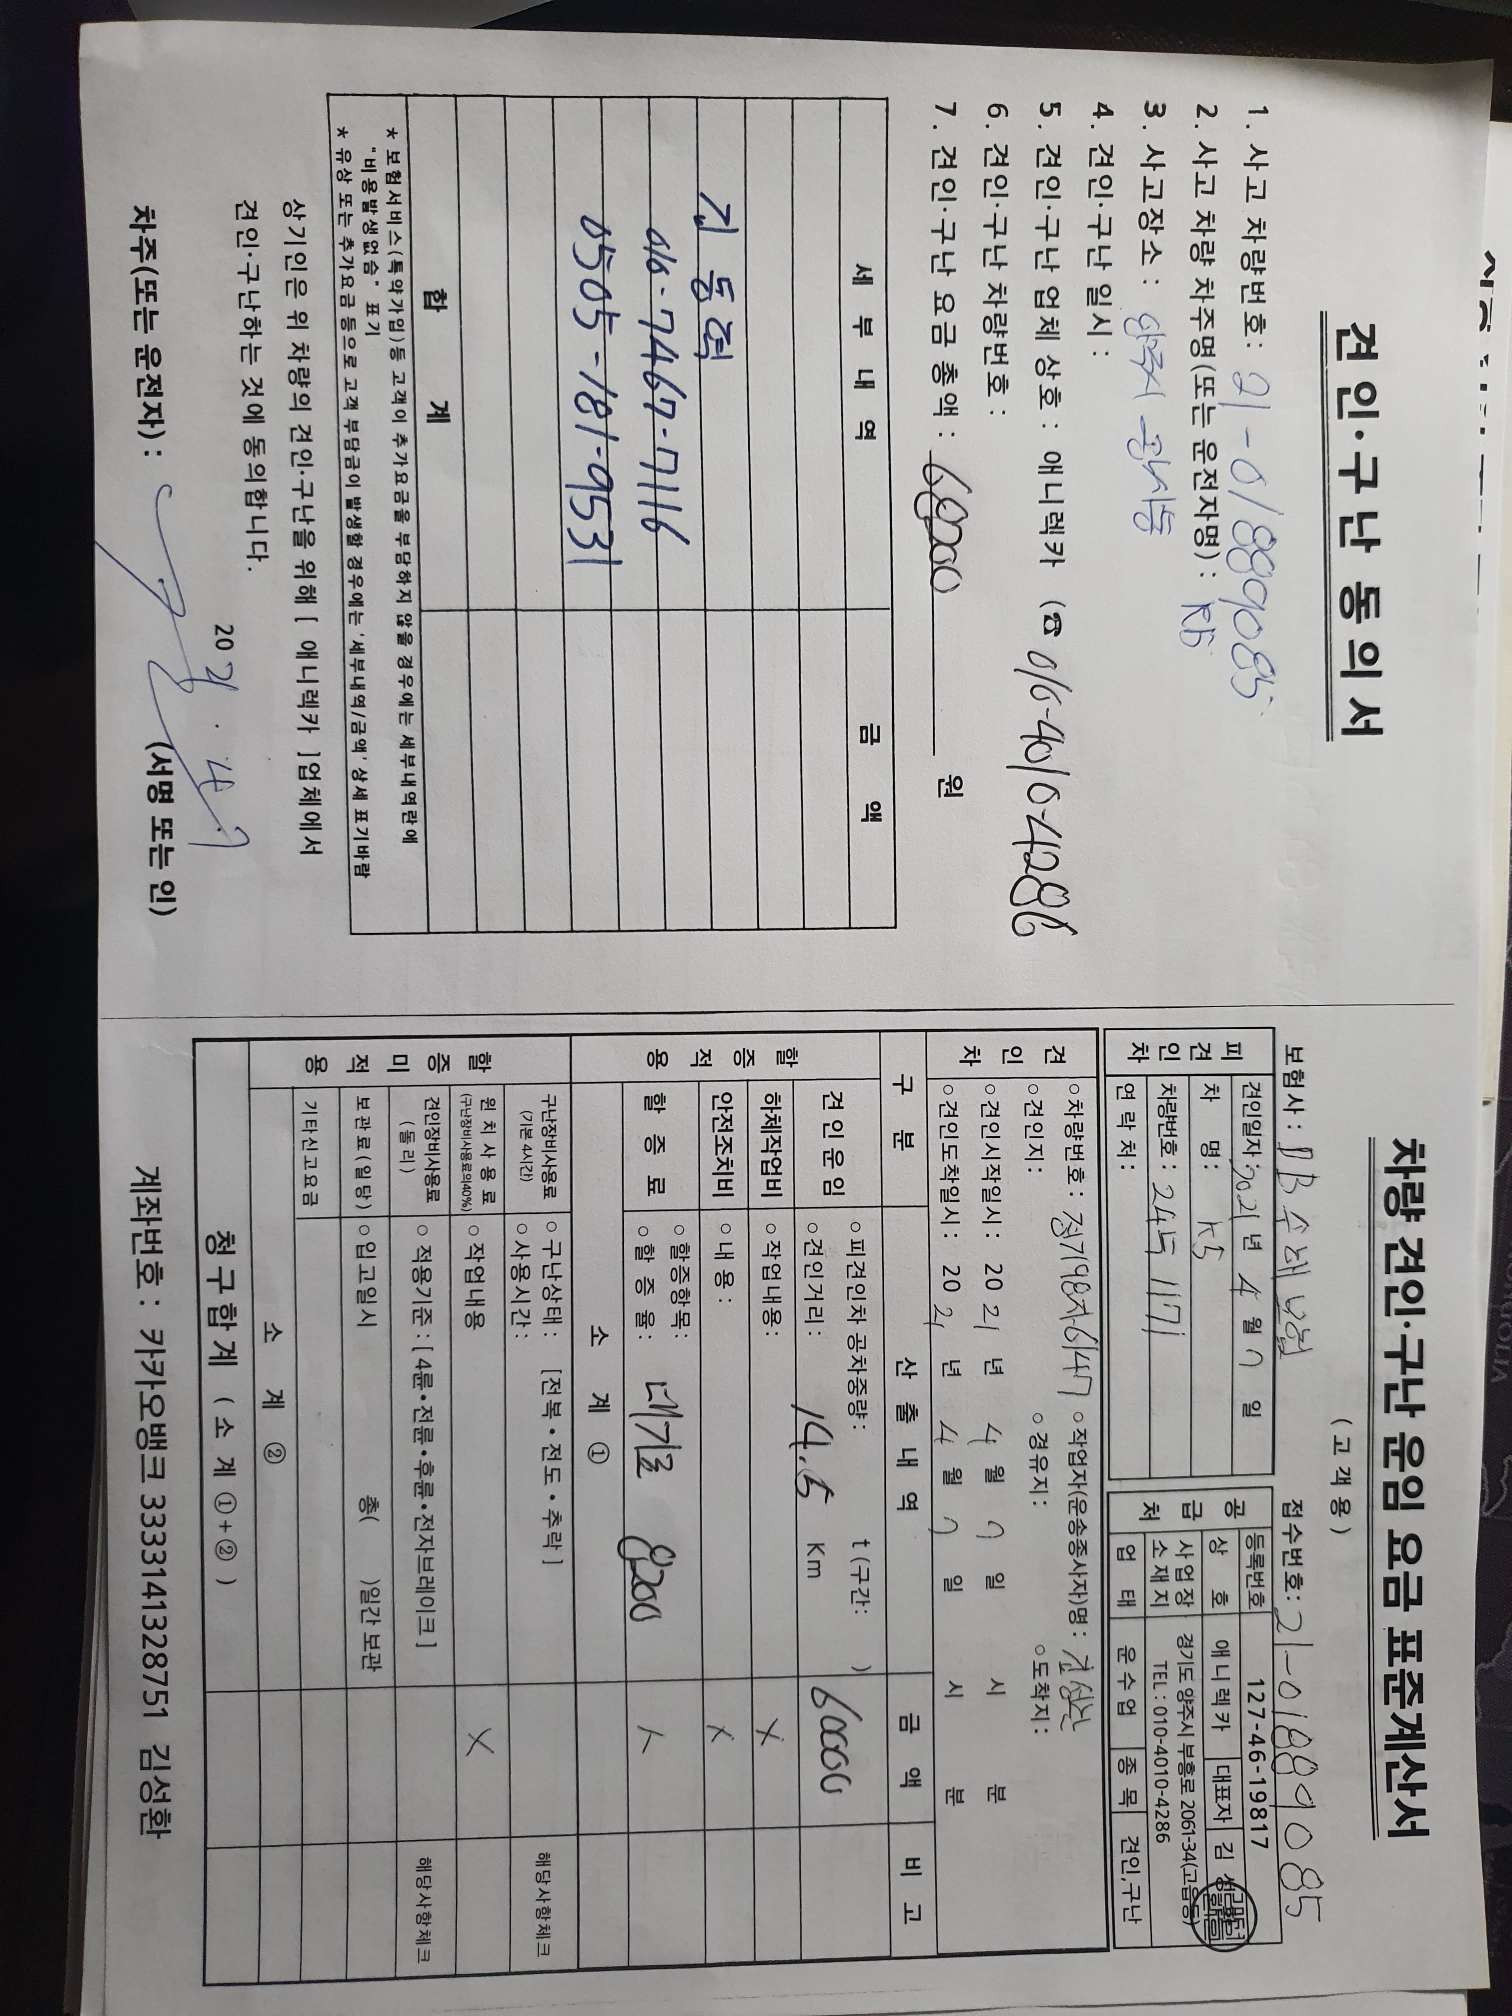 견인·구난 동의서
1. 사고 차량번호: 21-01889085
2. 사고 차량 차주명(또는 운전자명): K5
3. 사고장소: 양주시 광사동
4. 견인·구난 일시:
5. 견인·구난 업체 상호: 애니렉카 (☎ 010-4010-4286
6. 견인·구난 차량번호:
7. 견인·구난 요금 총액: 68200 원
세 부 내 역 금 액
김동혁
010-7467-7116
0505-181-9531
합 계
* 보험서비스(특약가입)등 고객이 추가요금을 부담하지 않을 경우에는 세부내역란에
"비용발생없음" 표기
* 유상 또는 추가요금 등으로 고객 부담금이 발생할 경우에는 '세부내역/금액' 상세 표기바람
상기인은 위 차량의 견인·구난을 위해 [ 애니렉카 ]업체에서
견인·구난하는 것에 동의합니다.
2021. 4. 7
차주(또는 운전자): (서명 또는 인)
차량 견인·구난 운임 요금 표준계산서
(고객용)
보험사: DB손해보험 접수번호: 21-01889085
피견인차
견인일자: 2021년 4월 7일
차 명: K5
차량번호: 245 1171
연락처:
공급처
등록번호 127-46-19817
상 호 애니렉카 대표자 김성환
사업장소재지 경기도 양주시 부흥로 2061-34(고읍동)
TEL: 010-4010-4286
업 태 운수업 종 목 견인,구난
견인차
○차량번호: 경기98자6147 ○작업자(운송종사자)명: 김성환
○견인지: ○경유지: ○도착지:
○견인시작일시: 2021년 4월 7일 시 분
○견인도착일시: 2021년 4월 7일 시 분
구 분 산 출 내 역 금 액 비 고
할증적용
견인운임 ○피견인차 공차중량: t (구간: )
○견인거리: 14.5 Km 60000
하체작업비 ○작업내용: X
안전조치비 ○내용: X
할증료 ○할증항목:
○할증율: 대기료 8200
소 계 ①
할증미적용
구난장비사용료 (기본 4시간) ○구난상태: [전복·전도·추락] 해당사항체크
○사용시간:
윈치사용료 (구난장비사용료의40%) ○작업내용 X
견인장비사용료 (돌리) ○적용기준: [4륜·전륜·후륜·전자브레이크] 해당사항체크
보관료(일당) ○입고일시 총( )일간 보관
기타신고요금
소 계 ②
청구합계 (소계①+②)
계좌번호: 카카오뱅크 3333141328751 김성환